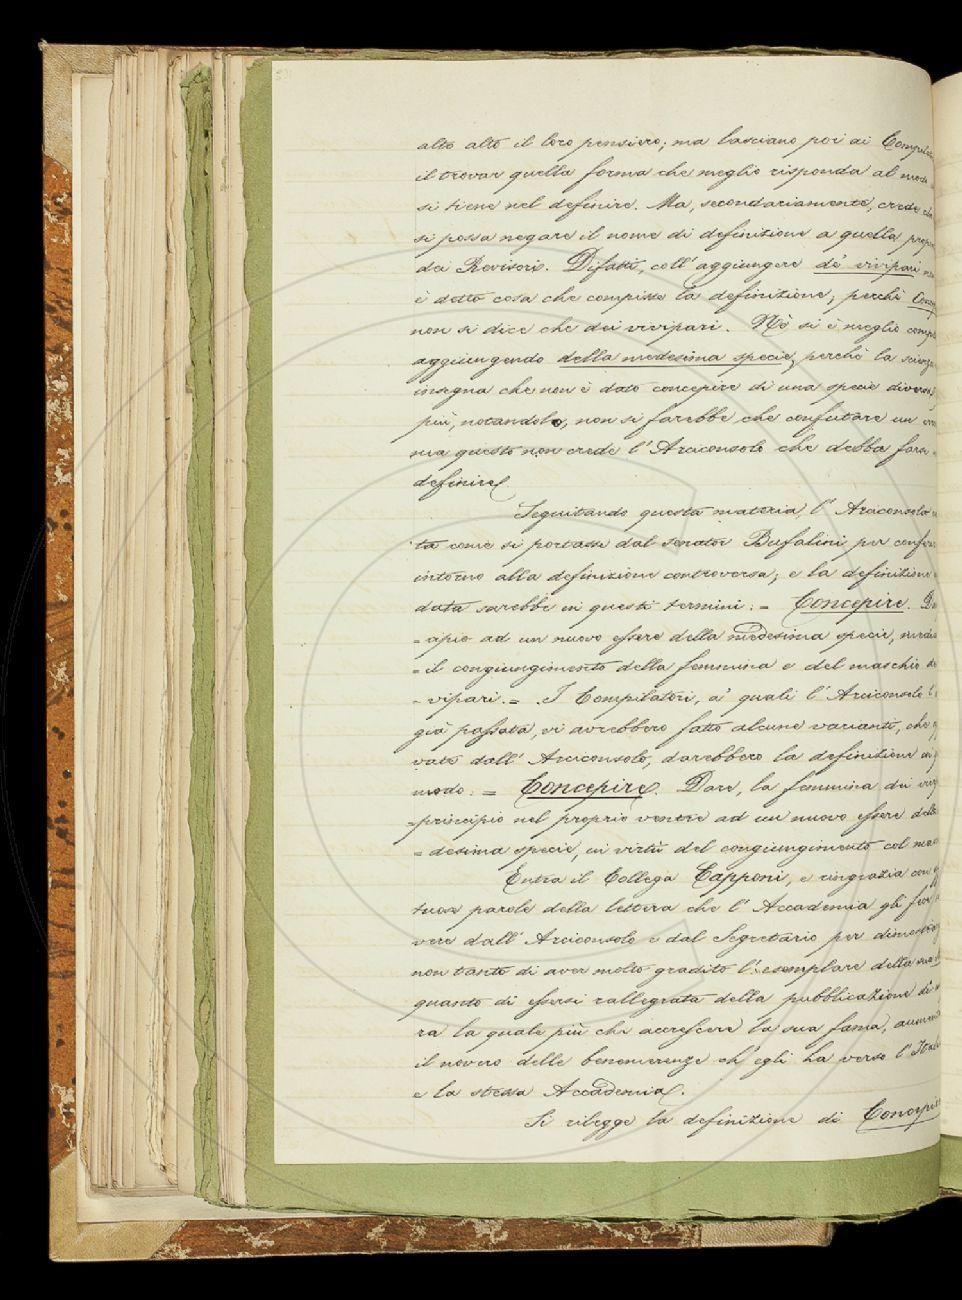 alto alto il loro pensiero; ma lasciano poi ai Compila
il trovar quella forma che meglio risponda al modo
si tiene nel definire. Ma, secondariamente, crede che
si possa negare il nome di definizione a quella propo
dei Revisori. Difatti, coll' aggiungere de' vivipari non
è detto cosa che compisse la definizione; perchè Conce
non si dice che dei vivipari. Nè si è meglio compi
aggiungendo della medesima specie, perchè la scienza
insegna che non è dato concepire di una specie diversa;
più, notandolo, non si farebbe che confutare un er
ma questo non crede l' Arciconsolo che debba farsi
definire.
Seguitando questa materia, l' Arciconsolo
ta come si portasse dal senator Bufalini per confer
intorno alla definizione controversa; e la definizione
data sarebbe in questi termini: = Concepire. Da
= cipio ad un nuovo essere della medesima specie, media
= il congiungimento della femmina e del maschio de
= vipari. = I Compilatori, a' quali l' Arciconsolo l'
già passata, vi avrebbero fatto alcune varianti, che
vate dall' Arciconsolo, darebbero la definizione in
modo: = Concepire. Dare, la femmina dei vivi
= principio nel proprio ventre ad un nuovo essere della
= desima specie, in virtù del congiungimento col mas
Entra il Collega Capponi, e ringrazia con
tuose parole della lettera che l' Accademia gli fece
vere dall' Arciconsolo e dal Segretario per dimostra
non tanto di aver molto gradito l' esemplare della sua
quanto di essersi rallegrata della pubblicazione di
ra la quale più che accrescere la sua fama, aumen
il novero delle benemerenze ch' egli ha verso l' Italia
e la stessa Accademia.
Si rilegge la definizione di Concepire